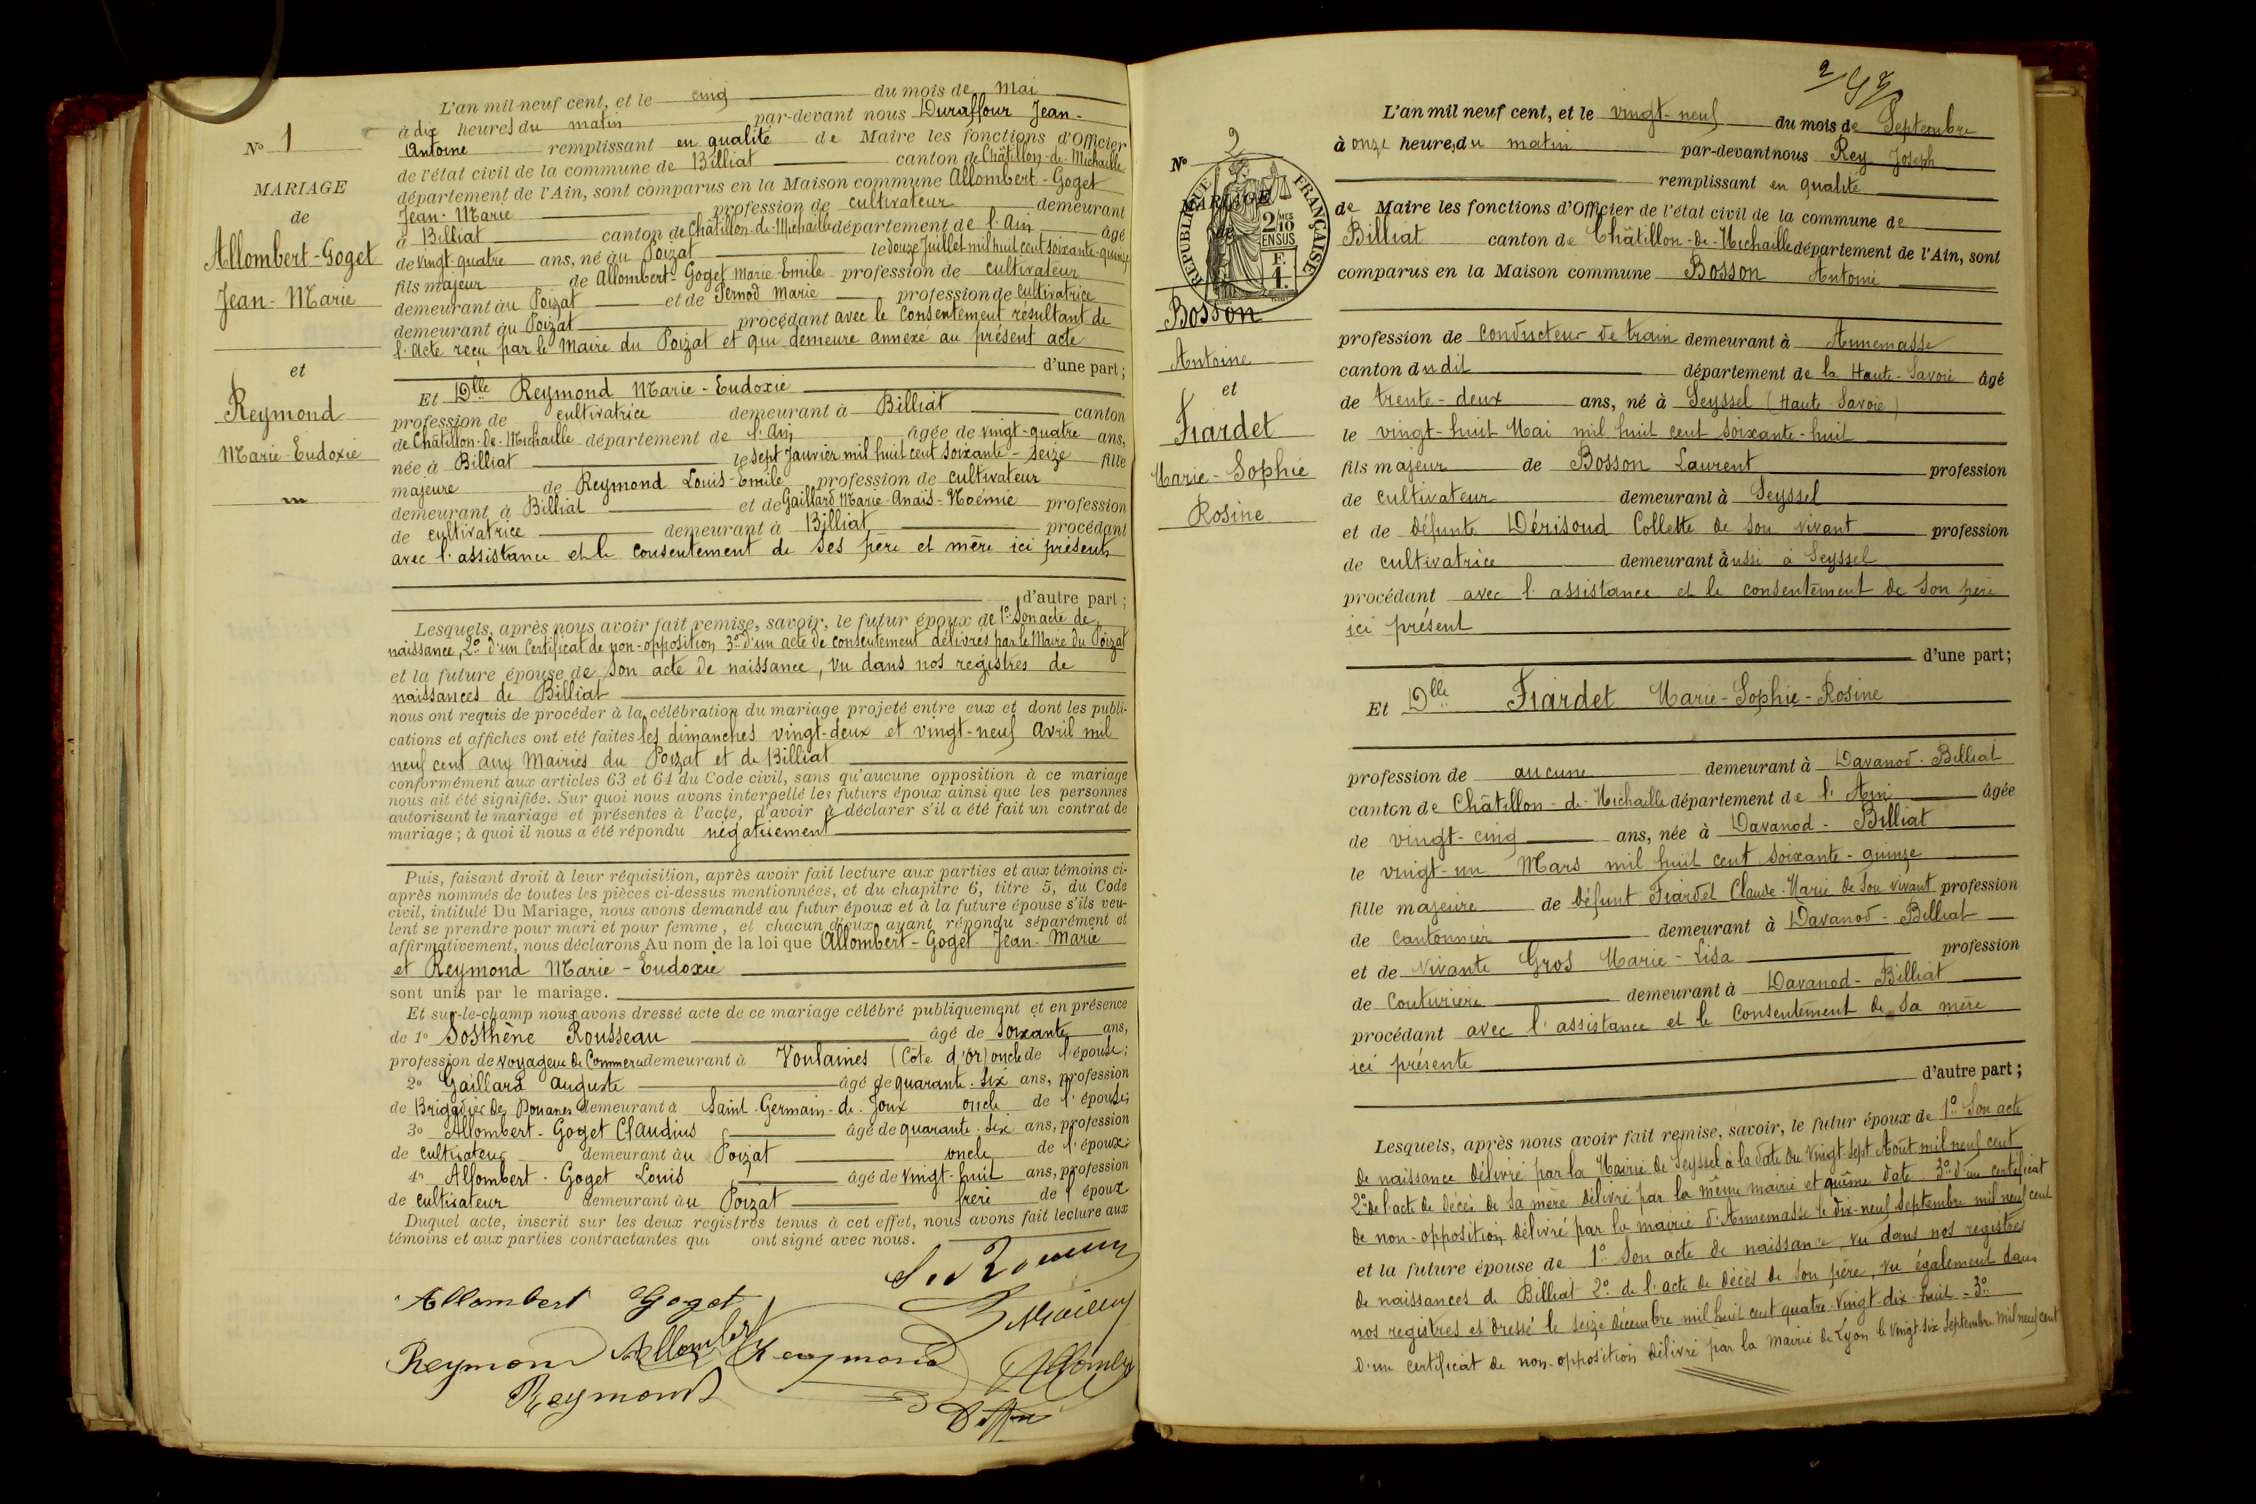 N° 1
MARIAGE
de
Allombert-Goget
Jean-Marie
et
Reymond
Marie-Eudoxie
L'an mil neuf cent, et le cinq du mois de Mai
à dix heures du matin par-devant nous Duraffour Jean-
Antoine remplissant en qualité de Maire les fonctions d'Officier
de l'état civil de la commune de Billiat canton de Châtillon-de-Michaille
département de l'Ain, sont comparus en la Maison commune Allombert-Goget
Jean-Marie profession de cultivateur demeurant
à Billiat canton de Châtillon-de-Michaille département de l'Ain âgé
de vingt quatre ans, né au Poizat le douze Juillet mil huit cent soixante-quinze
fils majeur de Allombert-Goget Marie Emile profession de cultivateur
demeurant au Poizat et de Pernod Marie profession de cultivatrice
demeurant au Poizat procédant avec le consentement résultant de
l'acte reçu par le Maire du Poizat et qui demeure annexé au présent acte
d'une part;
Et Dlle Reymond Marie-Eudoxie
profession de cultivatrice demeurant à Billiat canton
de Châtillon-de-Michaille département de l'Ain âgée de vingt-quatre ans,
née à Billiat le sept Janvier mil huit cent soixante-seize fille
majeure de Reymond Louis-Emile profession de cultivateur
demeurant à Billiat et de Gaillard Marie-Anaïs-Noémie profession
de cultivatrice demeurant à Billiat procédant
avec l'assistance et le consentement de ses père et mère ici présents
d'autre part;
Lesquels, après nous avoir fait remise, savoir, le futur époux de 1° Son acte de
naissance, 2° d'un Certificat de non-opposition 3° d'un acte de consentement délivrés par le Maire du Poizat
et la future épouse de son acte de naissance, vu dans nos registres de
naissances de Billiat
nous ont requis de procéder à la célébration du mariage projeté entre eux et dont les publi-
cations et affiches ont été faites les dimanches vingt-deux et vingt-neuf Avril mil
neuf cent aux Mairies du Poizat et de Billiat
conformément aux articles 63 et 64 du Code civil, sans qu'aucune opposition à ce mariage
nous ait été signifiée. Sur quoi nous avons interpellé les futurs époux ainsi que les personnes
autorisant le mariage et présentes à l'acte, d'avoir à déclarer s'il a été fait un contrat de
mariage; à quoi il nous a été répondu négativement
Puis, faisant droit à leur réquisition, après avoir fait lecture aux parties et aux témoins ci-
après nommés de toutes les pièces ci-dessus mentionnées, et du chapitre 6, titre 5, du Code
civil, intitulé Du Mariage, nous avons demandé au futur époux et à la future épouse s'ils veu-
lent se prendre pour mari et pour femme, et chacun d'eux ayant répondu séparément et
affirmativement, nous déclarons Au nom de la loi que Allombert-Goget Jean-Marie
et Reymond Marie-Eudoxie
sont unis par le mariage.
Et sur-le-champ nous avons dressé acte de ce mariage célébré publiquement et en présence
de 1° Sosthène Rousseau âgé de soixante ans,
profession de voyageur de Commerce demeurant à Voulaines (Côte d'or) oncle de l'épouse;
2° Gaillard Auguste âgé de quarante-six ans, profession
de Brigadier des Douanes demeurant à Saint-Germain-de-Joux oncle de l'épouse;
3° Allombert-Goget Claudius âgé de quarante-six ans, profession
de cultivateur demeurant au Poizat oncle de l'époux
4° Allombert-Goget Louis âgé de vingt-huit ans, profession
de cultivateur demeurant au Poizat frère de l'époux
Duquel acte, inscrit sur les deux registres tenus à cet effet, nous avons fait lecture aux
témoins et aux parties contractantes qui ont signé avec nous.
Allombert Goget
Reymond Allombert Reymond
Reymond
2
N° 2
RÉPUBLIQUE FRANÇAISE
2/10 MES EN SUS
F. 1.
MARIAGE
de
Bosson
Antoine
et
Fiardet
Marie-Sophie
Rosine
L'an mil neuf cent, et le vingt-neuf du mois de Septembre
à onze heures du matin par-devant nous Rey Joseph
remplissant en qualité
de Maire les fonctions d'Officier de l'état civil de la commune de
Billiat canton de Châtillon-de-Michaille département de l'Ain, sont
comparus en la Maison commune Bosson Antoine
profession de conducteur de train demeurant à Annemasse
canton dudit département de la Haute-Savoie âgé
de trente-deux ans, né à Seyssel (Haute Savoie)
le vingt-huit Mai mil huit cent soixante-huit
fils majeur de Bosson Laurent profession
de cultivateur demeurant à Seyssel
et de défunte Dérisoud Collette de son vivant profession
de cultivatrice demeurant aussi à Seyssel
procédant avec l'assistance et le consentement de son père
ici présent
d'une part;
Et Dlle Fiardet Marie-Sophie-Rosine
profession de aucune demeurant à Davanod-Billiat
canton de Châtillon-de-Michaille département de l'Ain âgée
de vingt-cinq ans, née à Davanod-Billiat
le vingt-un Mars mil huit cent soixante-quinze
fille majeure de défunt Fiardet Claude-Marie de son vivant profession
de cantonnier demeurant à Davanod-Billiat
et de vivante Gros Marie-Lisa profession
de couturière demeurant à Davanod-Billiat
procédant avec l'assistance et le consentement de sa mère
ici présente
d'autre part;
Lesquels, après nous avoir fait remise, savoir, le futur époux de 1° Son acte
de naissance délivré par la Mairie de Seyssel à la date du vingt-sept Août mil neuf cent
2° de l'acte de décès de sa mère délivré par la même mairie et même date 3° d'un certificat
de non-opposition délivré par la mairie d'Annemasse le dix-neuf Septembre mil neuf cent
et la future épouse de 1° Son acte de naissance, vu dans nos registres
de naissances de Billiat 2° de l'acte de décès de son père, vu également dans
nos registres et dressé le seize décembre mil huit cent quatre-vingt-dix-huit - 3°
d'un certificat de non-opposition délivré par la mairie de Lyon le vingt-six Septembre mil neuf cent